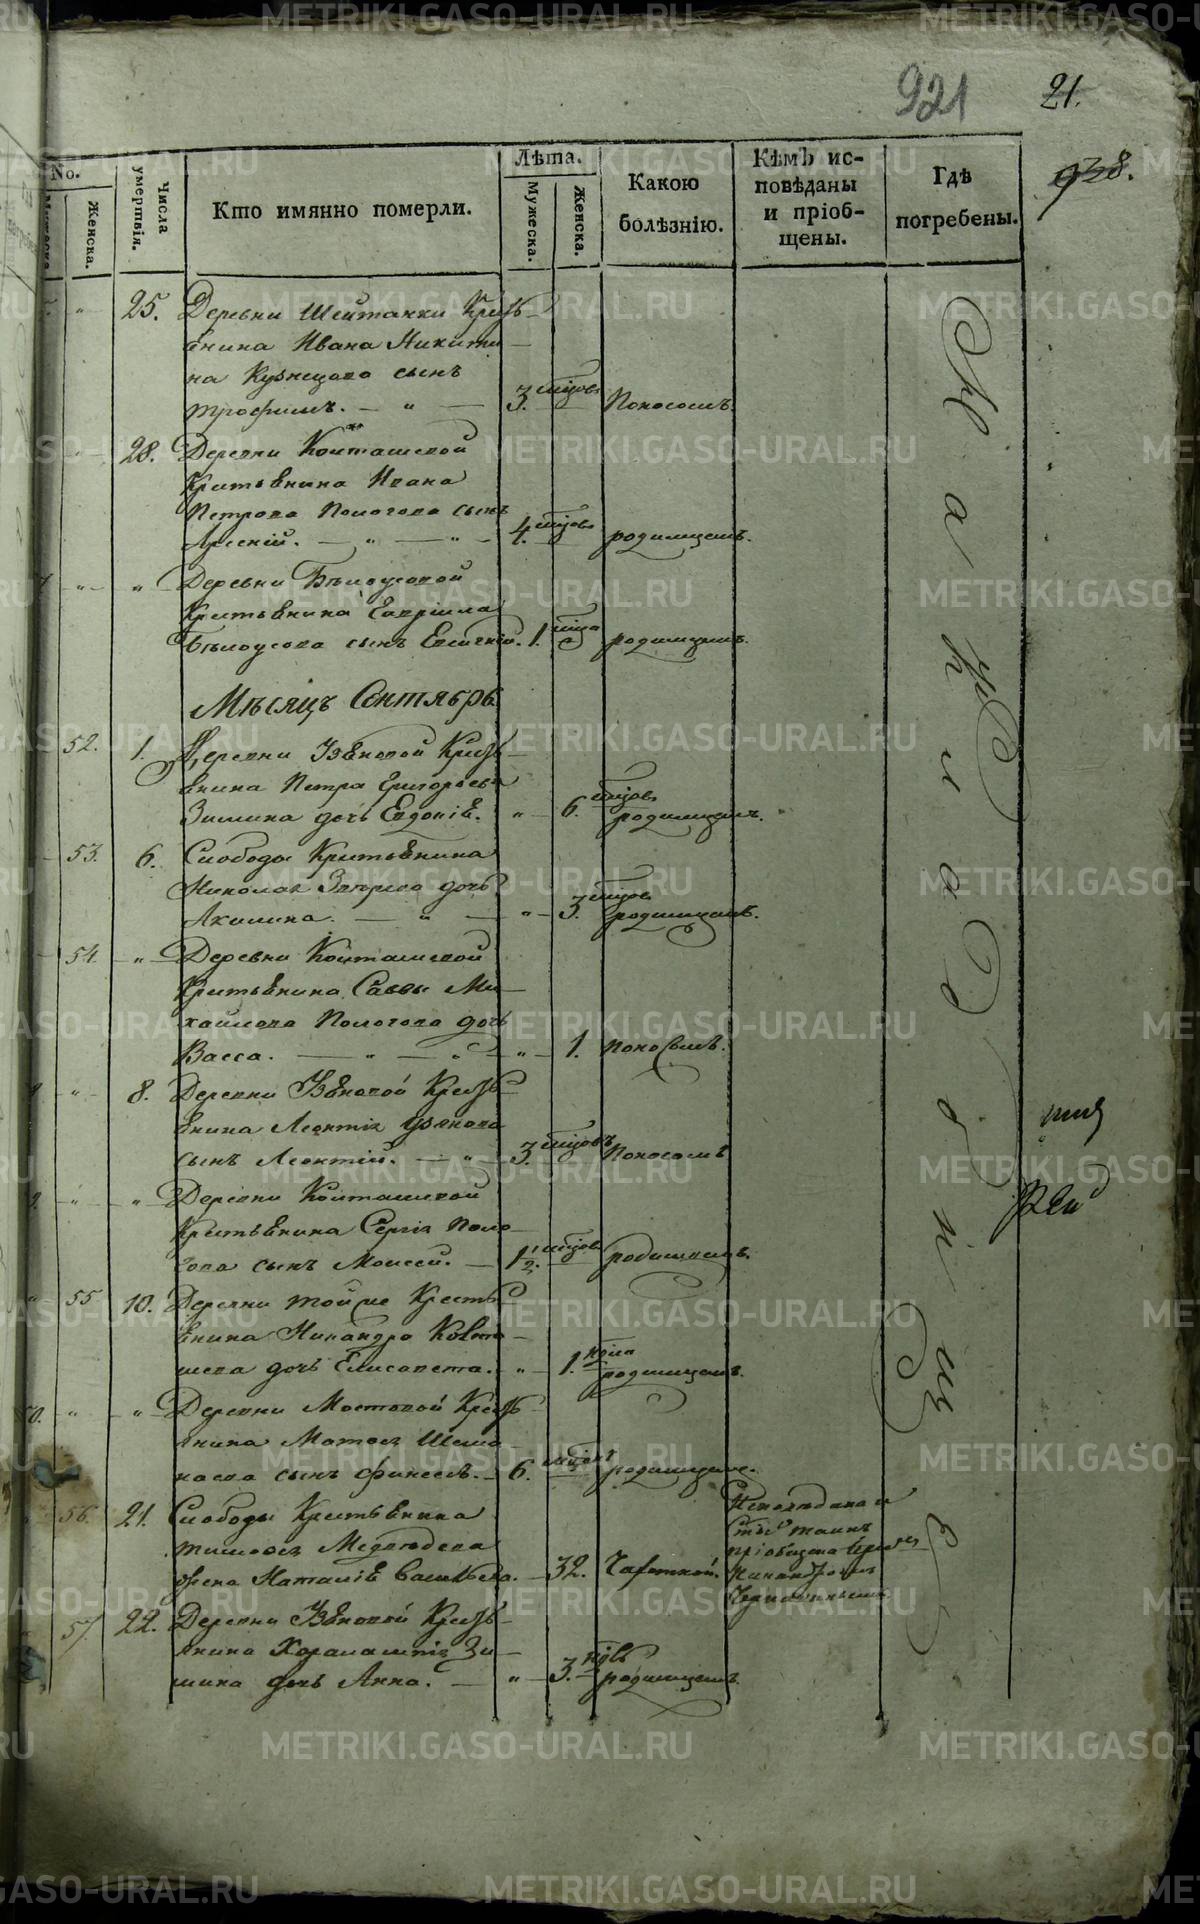 921
21.
938.
No.
Мужеска.
Женска.
Числа умертвія.
Кто имянно померли.
Лѣта.
Мужеска.
Женска.
Какою болѣзнію.
Кѣмъ исповѣданы и пріобщены.
Гдѣ погребены.
25. Деревни Шейтанки Кресть
янина Ивана Никити
на Кузнецова сынъ
Трофимъ. 3. мцовъ Поносомъ.
28. Деревни Колташевой
Крестьянина Ивана
Петрова Пологова сынъ
Арсеній. 4. мцовъ родимцемъ.
Деревни Бѣлоусовой
Крестьянина Гавріила
Бѣлоусова сынъ Евгеній. 1. мца родимцемъ.
Мѣсяцъ Сентябрь
52. 1. Деревни Узяновой Кресть
янина Петра Григорьева
Зимина дочь Евдокія. 6. мцовъ родимцемъ.
53. 6. Слободы Крестьянина
Николая Звѣрева дочь
Акилина. 3. мцовъ родимцемъ.
54. Деревни Колташевой
Крестьянина Саввы Ми
хайлова Пологова дочь
Васса. 1. поносомъ.
8. Деревни Узяновой Кресть
янина Леонтія Узянова
сынъ Леонтій. 3. мцовъ Поносомъ
9. Деревни Колташевой
Крестьянина Сергія Поло
гова сынъ Моисей. 1½. мцовъ родимцемъ.
55 10. Деревни тойже Кресть
янина Никандра Колта
шева дочь Елисавета. 1. ндля родимцемъ.
50. Деревни Мостовой Кресть
янина Матвея Шема
наева сынъ Финеесъ. 6. мцовъ родимцемъ.
56. 21. Слободы Крестьянина
Тимофея Медвѣдева
жена Наталія Васильева. 32. Чахоткой.
Исповѣдана и
Стыхъ таинъ
пріобщена Іереемъ
Никандромъ
57. 22. Деревни Узяновой Кресть
янина Харалампія Зи
мина дочь Анна. 3. ндль родимцемъ.
На приходскомъ
Іерей
METRIKI.GASO-URAL.RU